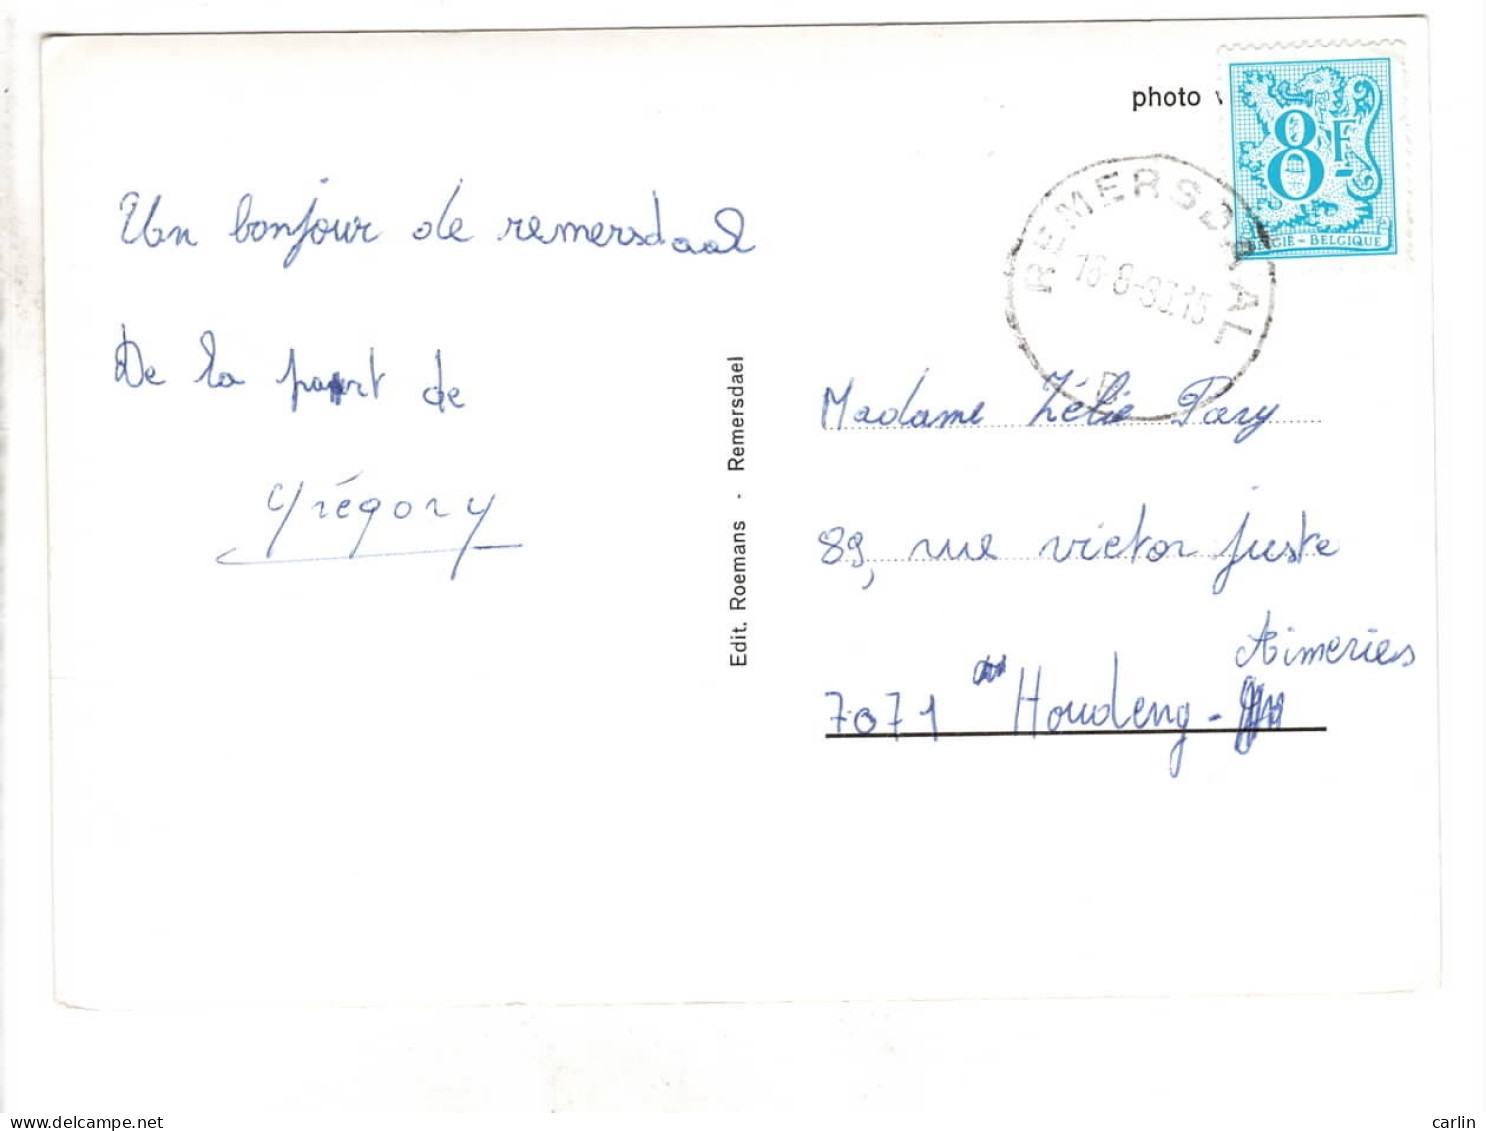 photo
8F
BELGIË - BELGIQUE
REMERSDAAL
Un bonjour de remersdaal
De la part de
Grégory
Edit. Roemans - Remersdael
Madame Zélie Pary
89, rue victor juste
Aimeries
7071 Houdeng -
delcampe.net
carlin